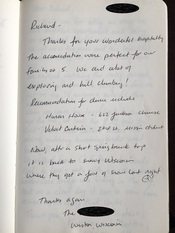 Richard -
Thanks for your wonderful hospitality
The accomodations were perfect for our
family of 5. We did a lot of
exploring and hill climbing!
Recommendation for dinner include
Hunan Homes - 622 Jackson Chinese
Velvet Cantina -
Now, after a short spring break trip
it is back to snowy Wisconsin
where they got a foot of snow last night
Thanks again
The
Weston Wisconsin